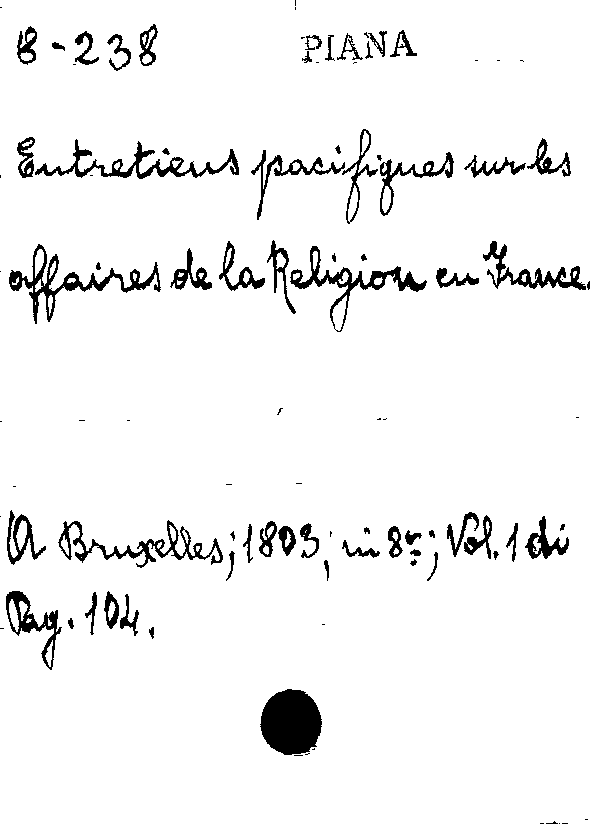 8-238 PIANA
Entretiens pacifiques sur les
affaires de la Religion en France.
A Bruxelles; 1803; in 8º; Vol. 1 di
Pag. 104.